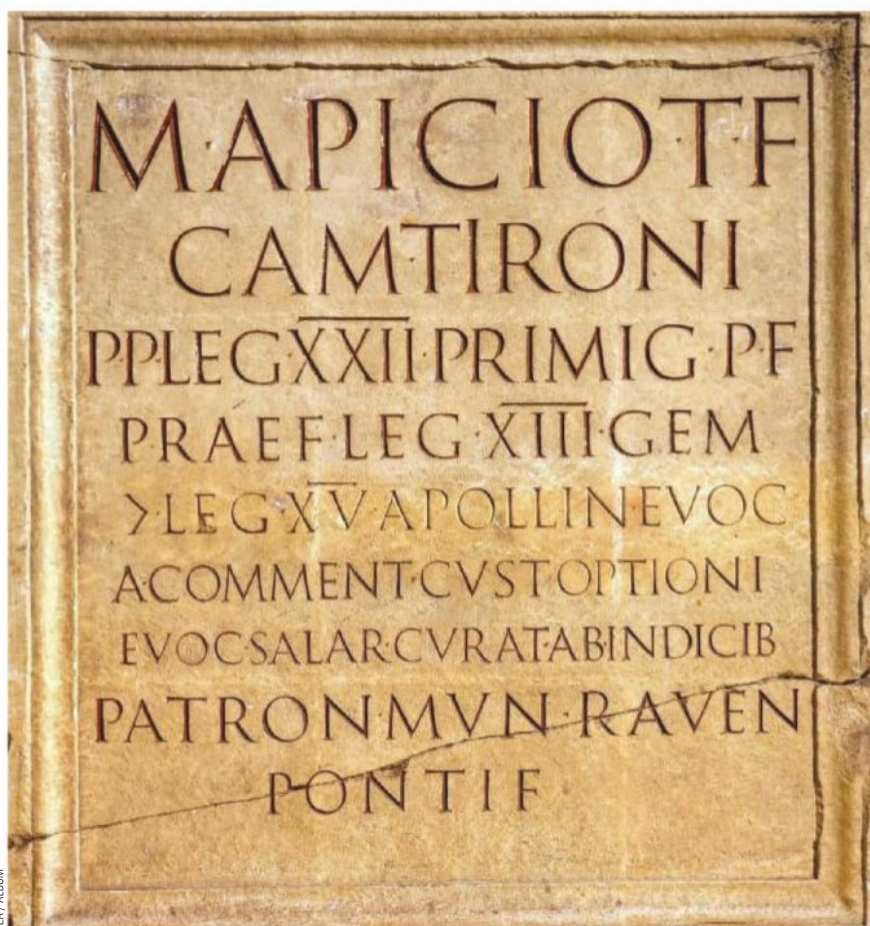 M·APICIO·T·F
CAM·TIRONI
P·P·LEG·XXII·PRIMIG·P·F
PRAEF·LEG·XIII·GEM
>·LEG·XV·APOLLIN·EVOC
A·COMMENT·CVST·OPTIONI
EVOC·SALAR·CVRAT·AB·INDICIB
PATRON·MVN·RAVEN
PONTIF
/ ALBUM